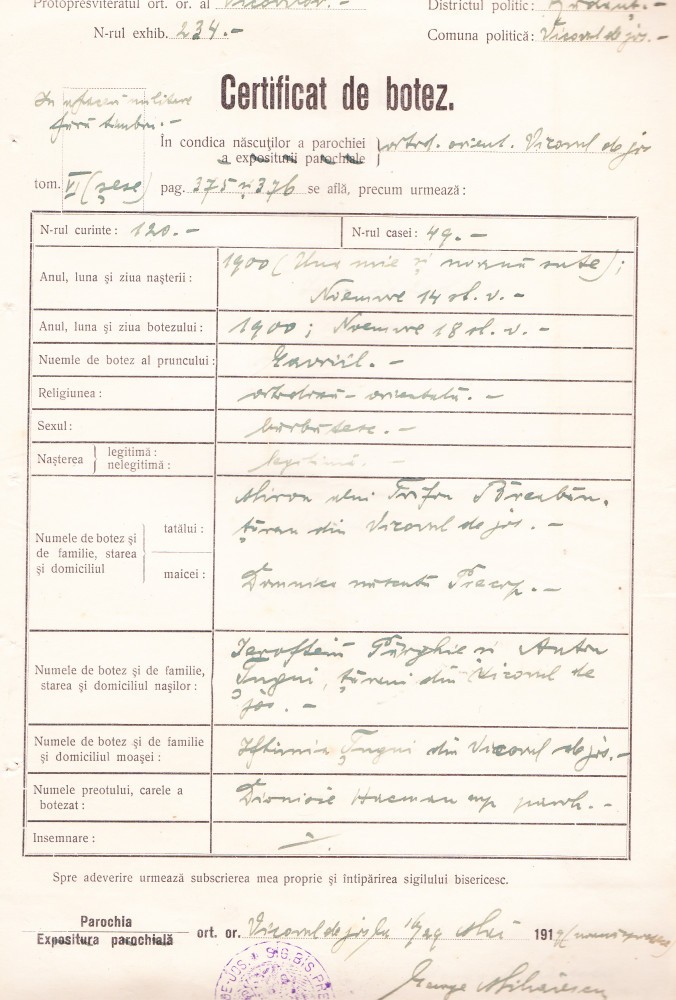 Protopresviteratul ort. or. al Vicovilor. –
Districtul politic: Rădăuț. –
N-rul exhib. 234. –
Comuna politică: Vicovul de jos. –
Certificat de botez.
In afaceri militare
fără timbru. –
În condica născuților a parochiei
a expositurii parochiale
ortod. orient. Vicovul de jos
tom. VI (șese) pag. 375 și 376 se află, precum urmează:
N-rul curinte: 120. –
N-rul casei: 49. –
Anul, luna și ziua nașterii:
1900 (Una mie și nouă sute);
Noemvre 14 st. v. –
Anul, luna și ziua botezului: 1900; Noemvre 18 st. v. –
Nuemle de botez al pruncului: Gavriil. –
Religiunea: ortodoxă-orientală. –
Sexul: bărbătesc. –
Nașterea
legitimă:
nelegitimă:
legitimă. –
Numele de botez și
de familie, starea
și domiciliul
tatălui:
Miron alui Trifon Breabăn.
țăran din Vicovul de jos. –
maicei:
Domnica născută Procop. –
Numele de botez și de familie,
starea și domiciliul nașilor:
Ieroftei Pârghie și Anton
Țugui, țărani din Vicovul de
jos. –
Numele de botez și de familie
și domiciliul moașei:
Iftimia Țugui din Vicovul de jos. –
Numele preotului, carele a
botezat:
Dionisie Hacman exp. paroh. –
Insemnare:
Spre adeverire urmează subscrierea mea proprie și întipărirea sigilului bisericesc.
Parochia
Expositura parochială
ort. or. Vicovul de jos la 16/29 Mai 1919
George Mihăescu
DE JOS. SIG. BIS. PRE